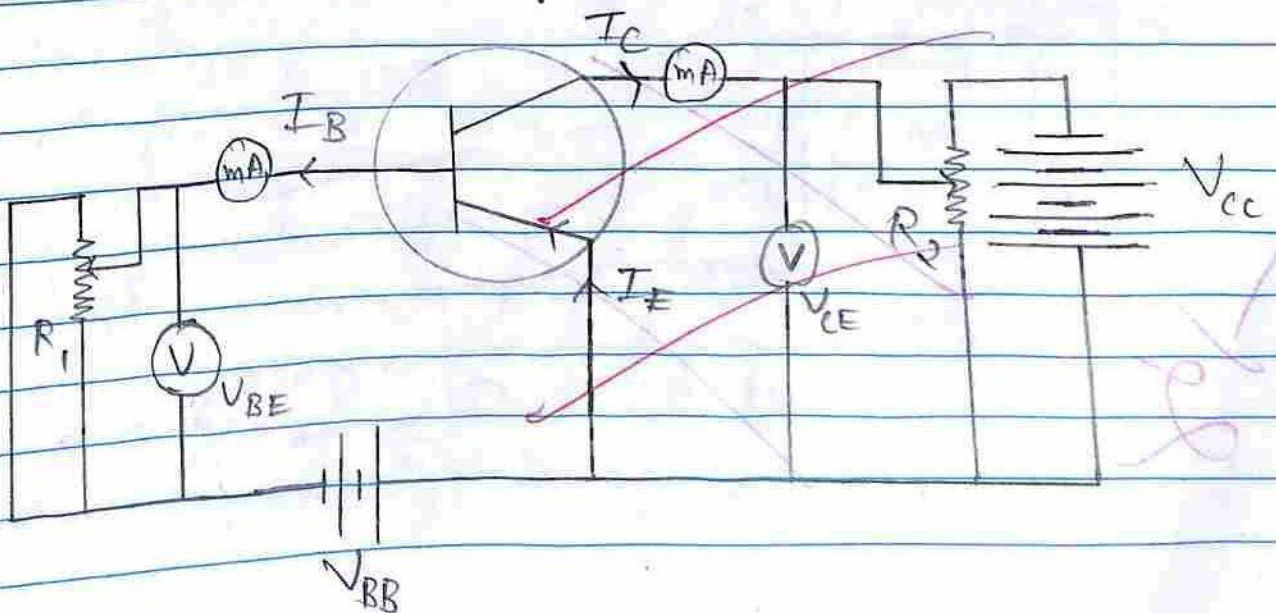 I_C
mA
I_B
mA
V_CC
R_2
V
V_CE
I_E
R_1
V
V_BE
V_BB